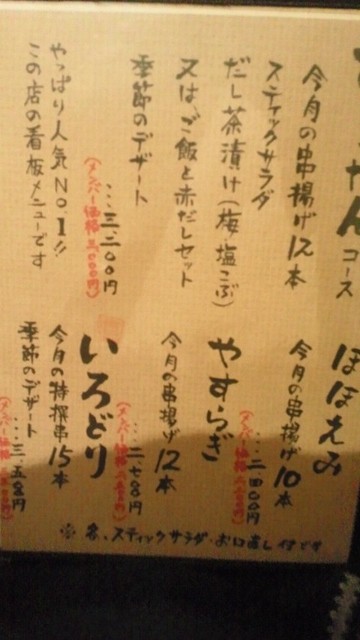 ゃんコース
今月の串揚げ12本
スティックサラダ
だし茶漬け(梅・塩こぶ)
又は、ご飯と赤だしセット
季節のデザート
…三、二〇〇円
(メンバー価格三、〇〇〇円)
やっぱり人気No.1!!
この店の看板メニューです
ほほえみ
今月の串揚げ10本
…二、四〇〇円
やすらぎ
今月の串揚げ12本
…二、七〇〇円
いろどり
今月の特撰串15本
季節のデザート
…三、五〇〇円
※ 各、スティックサラダ・お口直し付です